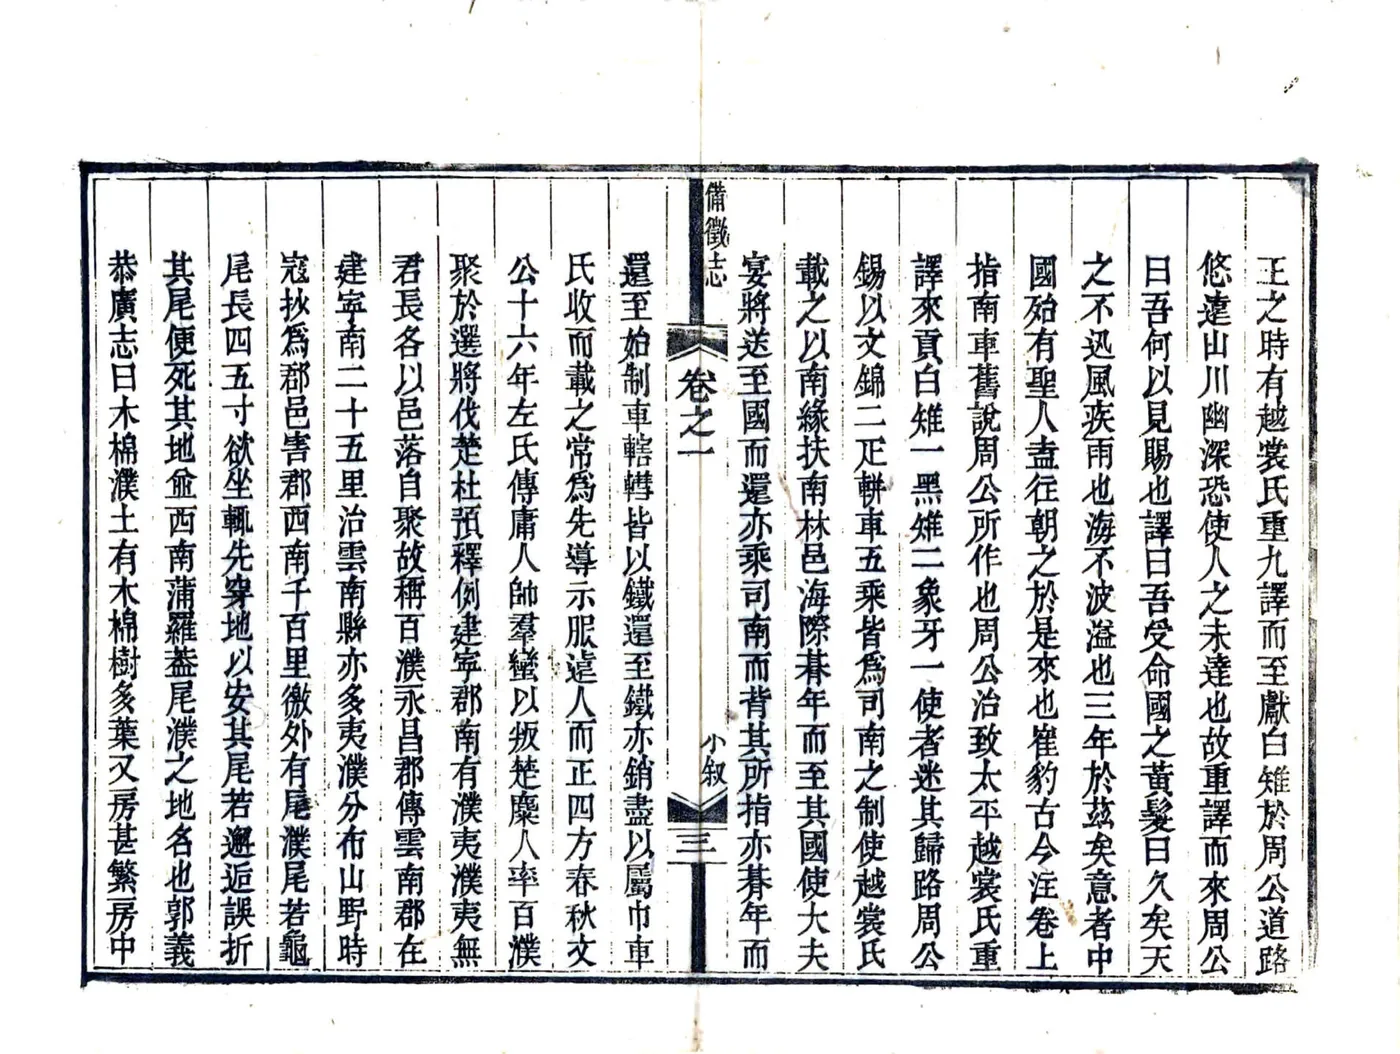 王之時有越裳氏重九譯而至獻白雉於周公道路
悠遠山川幽深恐使人之未達也故重譯而來周公
曰吾何以見賜也譯曰吾受命國之黃髮曰久矣天
之不迅風疾雨也海不波溢也三年於茲矣意者中
國殆有聖人盍往朝之於是來也崔豹古今注卷上
指南車舊說周公所作也周公治致太平越裳氏重
譯來貢白雉一黑雉二象牙一使者迷其歸路周公
錫以文錦二疋軿車五乘皆爲司南之制使越裳氏
載之以南緣扶南林邑海際朞年而至其國使大夫
宴將送至國而還亦乘司南而背其所指亦朞年而
備徵志
卷之一
小叙
三
還至始制車轄轊皆以鐵還至鐵亦銷盡以屬巾車
氏收而載之常爲先導示服遠人而正四方春秋文
公十六年左氏傳庸人帥羣蠻以叛楚麇人率百濮
聚於選將伐楚杜預釋例建寧郡南有濮夷濮夷無
君長各以邑落自聚故稱百濮永昌郡傳雲南郡在
建寧南二十五里治雲南縣亦多夷濮分布山野時
寇抄爲郡邑害郡西南千百里徼外有尾濮尾若龜
尾長四五寸欲坐輒先穿地以安其尾若邂逅誤折
其尾便死其地並西南蒲羅葢尾濮之地名也郭義
恭廣志曰木棉濮土有木棉樹多葉又房甚繁房中